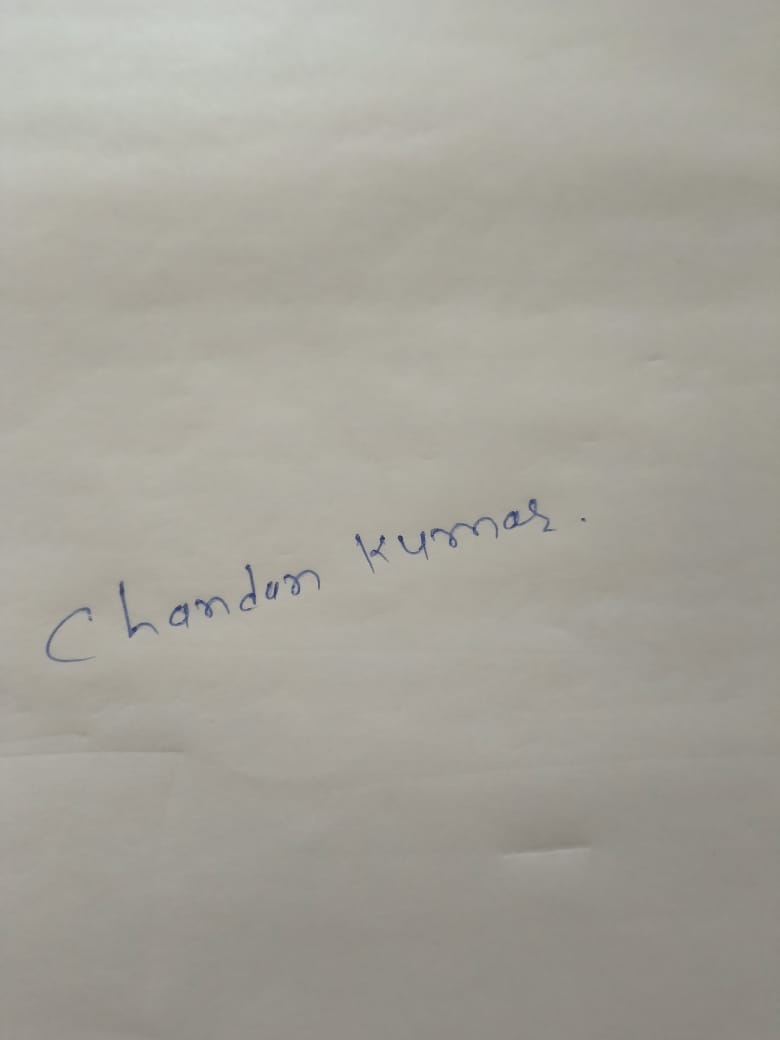 Chandan Kumar.